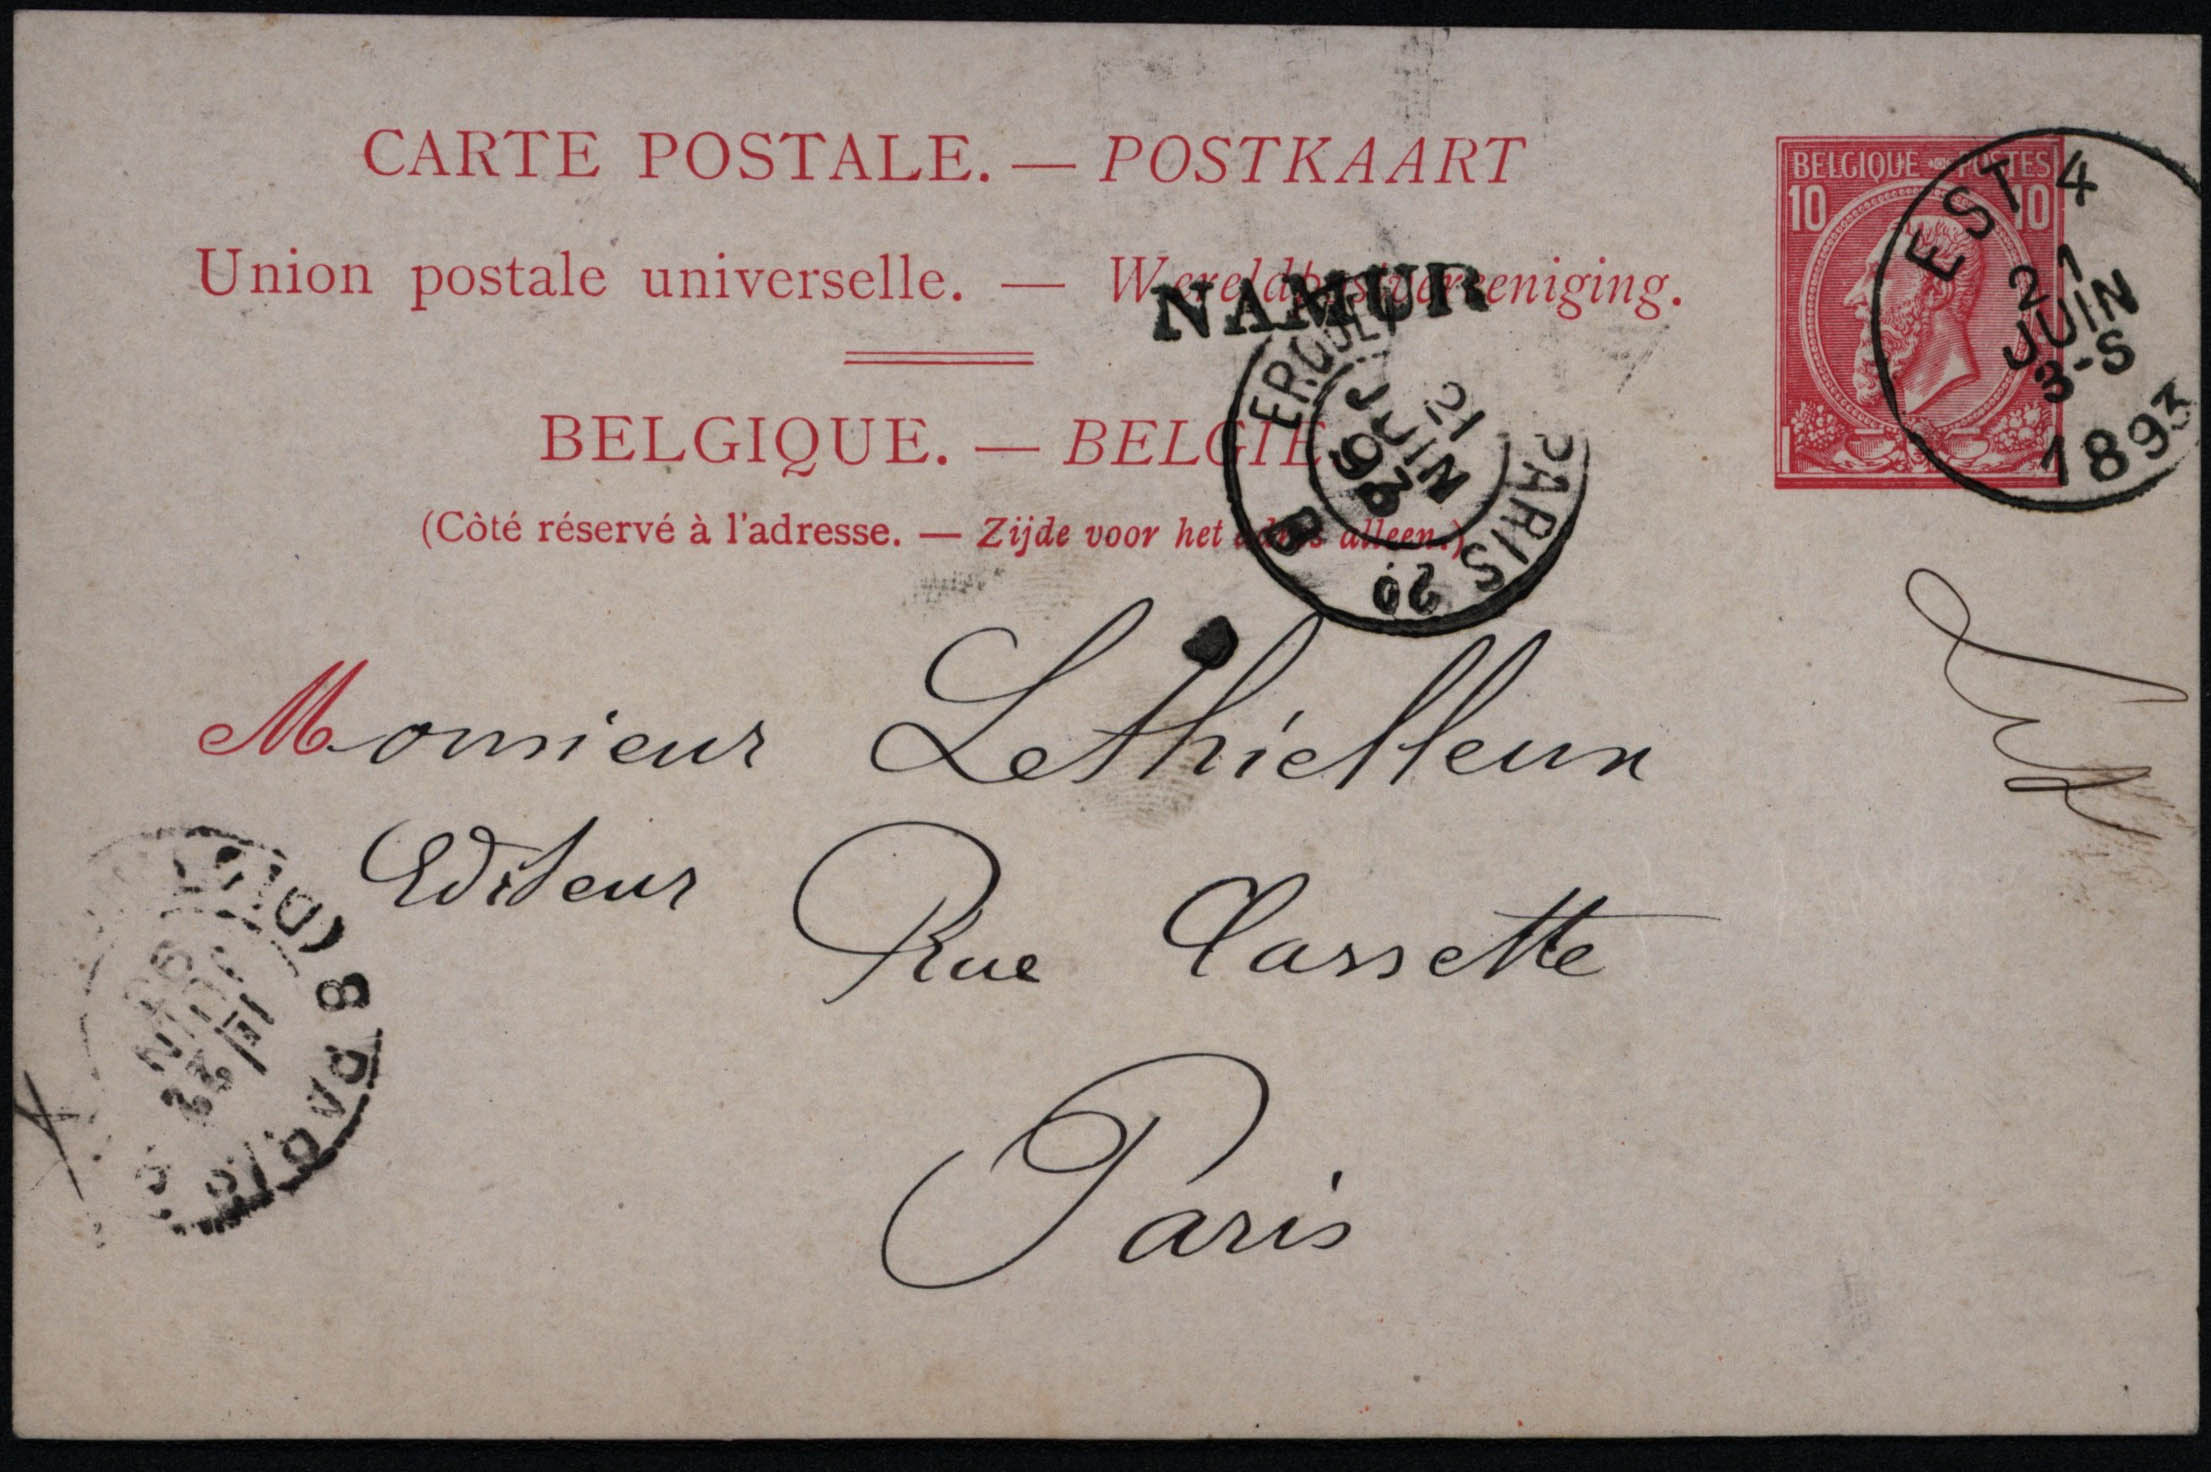 CARTE POSTALE. — POSTKAART
Union postale universelle. — Wereldpostvereeniging.
BELGIQUE. — BELGIE
(Côté réservé à l'adresse. — Zijde voor het adres alleen.)
BELGIQUE POSTES
10 10
EST 4
21
JUIN
3-S
1893
NAMUR
PARIS
21
JUIN
93
Monsieur Lethielleux
Editeur Rue Cassette
Paris
PARIS
22
JUIN
93